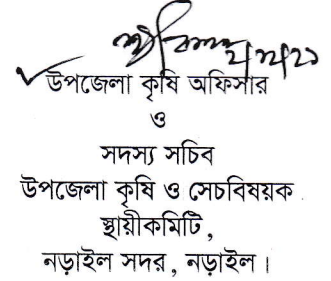 উপজেলা কৃষি অফিসার
ও
সদস্য সচিব
উপজেলা কৃষি ও সেচবিষয়ক
স্থায়ীকমিটি,
নড়াইল সদর, নড়াইল।